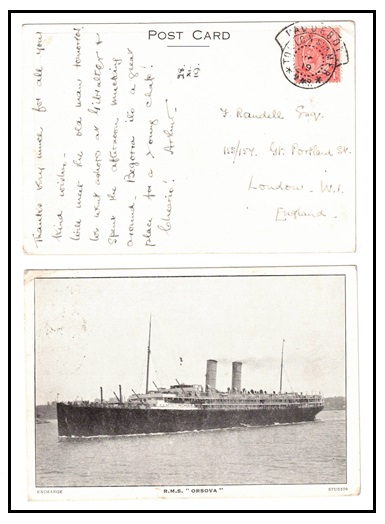 POST CARD
Thanks very much for all your
kind wishes.
Will meet the old man tomorrow!
We went ashore at Gibraltar &
spent the afternoon
around. Begorra it's a great
place for a young chap!
Cheerio! Arthur.
PAQUEBOT
TOULON
F. Randell Esq.
Gt. Portland St.
London. W.1.
England.
R.M.S. "ORSOVA"